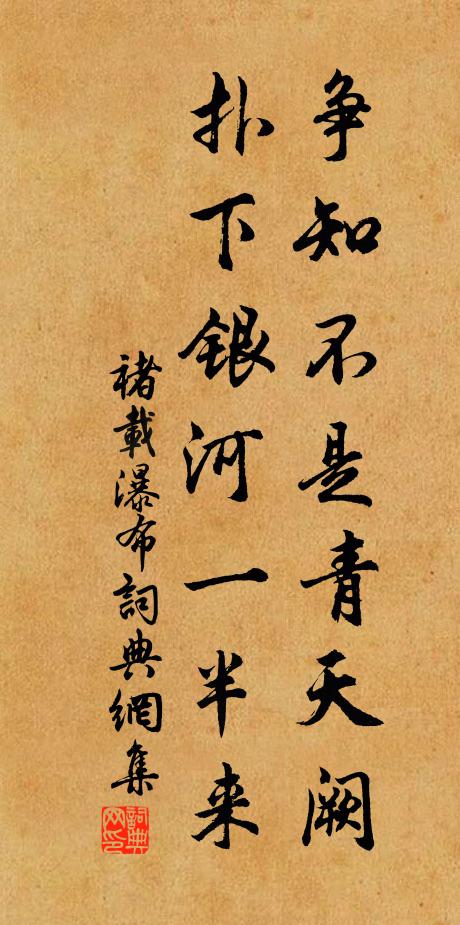 争知不是青天阙
扑下银河一半来
褚载瀑布詞典網集
詞典網印